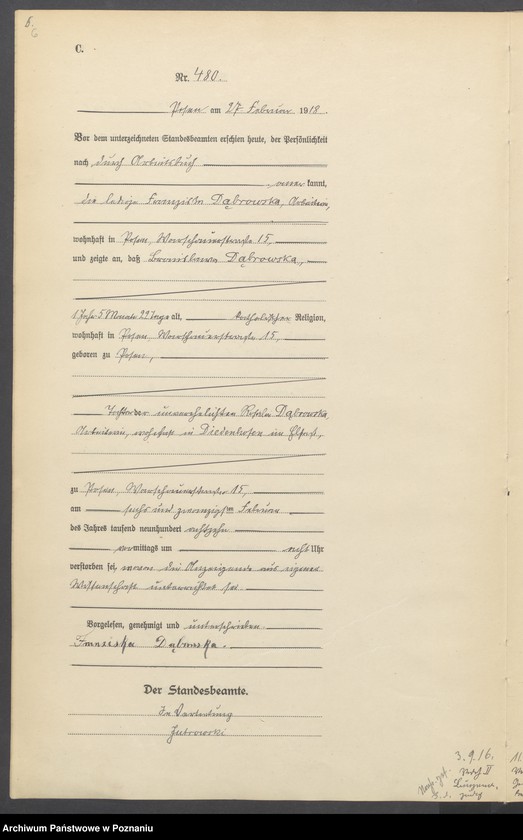 5.
6
C.
Nr. 480.
Posen am 27. Februar 1918.
Vor dem unterzeichneten Standesbeamten erschien heute, der Persönlichkeit
nach durch Arbeitsbuch
anerkannt,
die ledige Franziska Dąbrowska, Arbeiterin,
wohnhaft in Posen, Warschauerstraße 15,
und zeigte an, daß Bronislawa Dąbrowska,
1 Jahr 5 Monate 29 Tage alt, katholischer Religion,
wohnhaft in Posen, Warschauerstraße 15,
geboren zu Posen,
Tochter der unverehelichten Rosalie Dąbrowska,
Arbeiterin, wohnhaft in Diedenhofen im Elsaß,
zu Posen, Warschauerstraße 15,
am sechs und zwanzigsten Februar
des Jahres tausend neunhundert achtzehn
vormittags um acht Uhr
verstorben sei, wovon die Anzeigende aus eigener
Wissenschaft unterrichtet sei.
Vorgelesen, genehmigt und unterschrieben
Franziska Dąbrowska.
Der Standesbeamte.
In Vertretung
3. 9. 16.
Archiwum Państwowe w Poznaniu